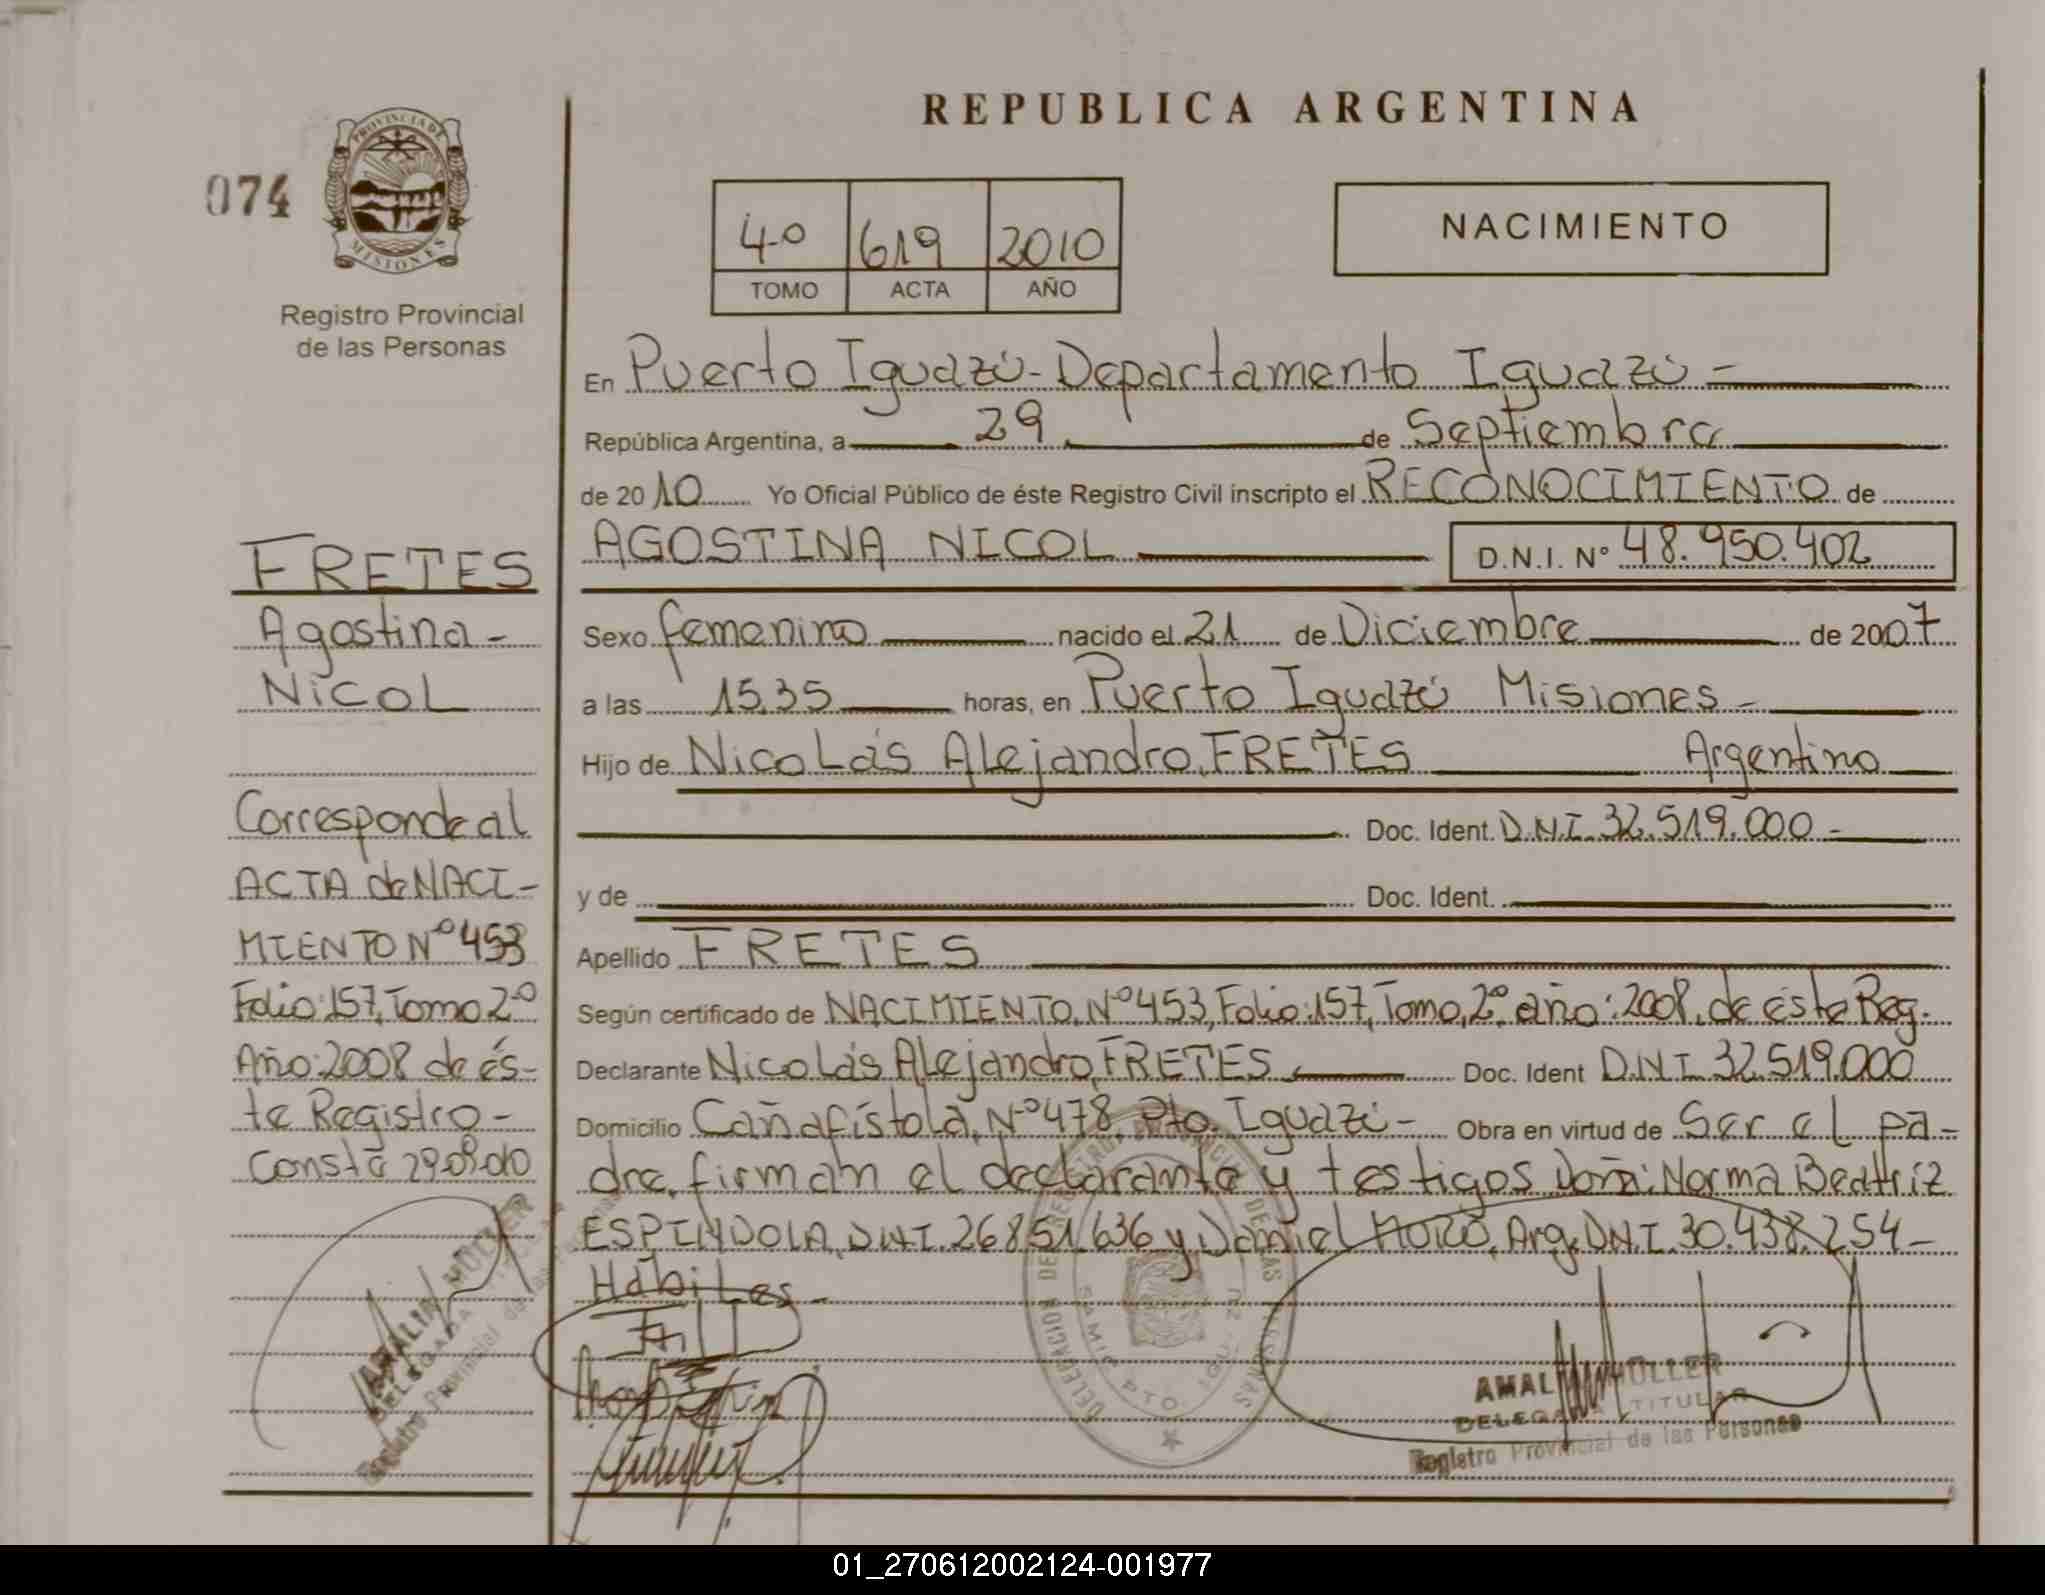 REPUBLICA ARGENTINA
074
PROVINCIA DE
MISIONES
Registro Provincial
de las Personas
4º 619 2010
TOMO ACTA AÑO
NACIMIENTO
En Puerto Iguazú - Departamento Iguazú -
República Argentina, a 29 de Septiembre
de 2010 Yo Oficial Público de éste Registro Civil inscripto el RECONOCIMIENTO de
AGOSTINA NICOL D.N.I. Nº 48.950.402
Sexo femenino nacido el 21 de Diciembre de 2007
a las 15.35 horas, en Puerto Iguazú Misiones -
Hijo de Nicolás Alejandro, FRETES Argentino
Doc. Ident. D.N.I. 32.519.000 -
y de Doc. Ident.
Apellido FRETES
Según certificado de NACIMIENTO. Nº 453, Folio: 157, Tomo, 2º, año: 2008, de éste Reg.
Declarante Nicolás Alejandro, FRETES Doc. Ident D.N.I. 32.519.000
Domicilio Cañafístola, Nº 478, Pto. Iguazú - Obra en virtud de Ser el pa-
dre, firman el declarante y testigos Norma Beatriz
ESPINDOLA, D.N.I. 26.851.636 y Daniel Arg. D.N.I. 30.438.254 -
Hábiles -
FRETES
Agostina -
NicoL
Corresponde al
ACTA de NACI-
MIENTO Nº 453
Folio: 157, Tomo 2º
Año: 2008 de és-
te Registro -
Consta 29.09.010
AMALIA MULLER
DELEGADA
Registro Provincial de las
DELEGACION DE REGISTRO PROVINCIAL DE LAS PERSONAS
PTO. IGUAZU
AMAL MULLER
DELEGADA TITULAR
Registro Provincial de las Personas
01_270612002124-001977